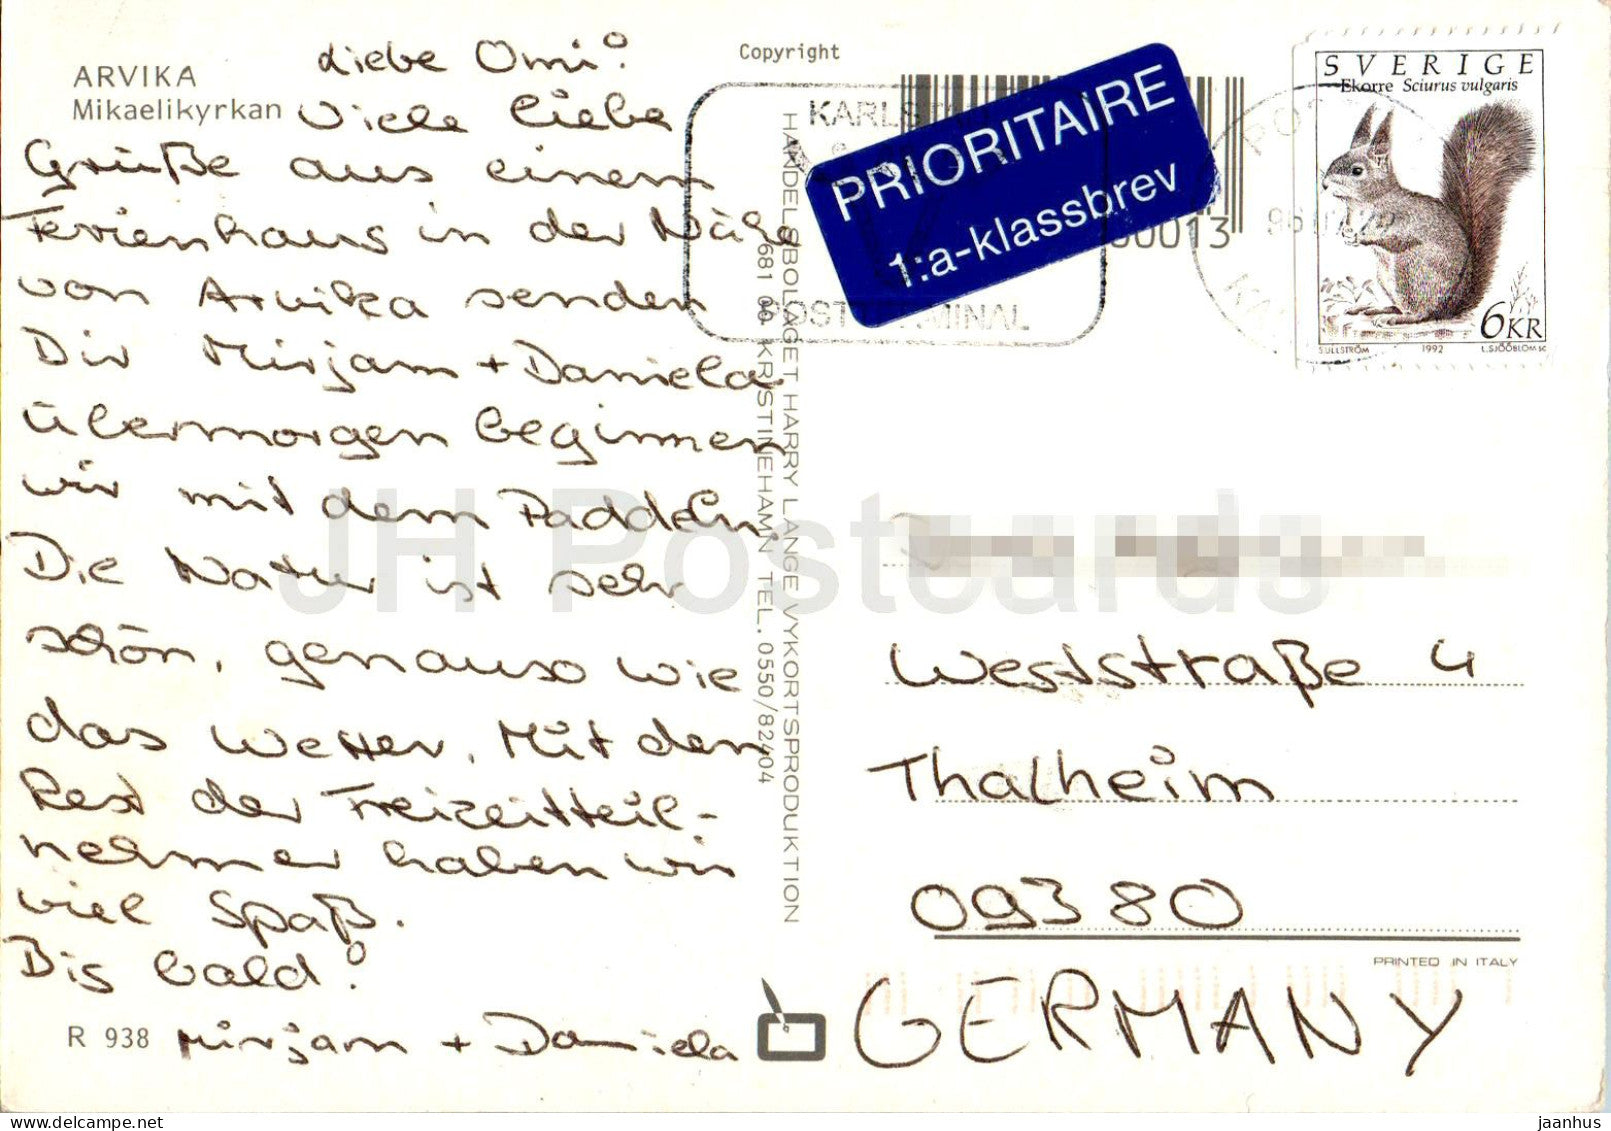 ARVIKA
Mikaelikyrkan
Liebe Omi!
Viele liebe
Grüße aus einem
Ferienhaus in der Nähe
von Arvika senden
Dir Mirjam + Daniela
übermorgen beginnen
wir mit dem Paddeln.
Die Natur ist sehr
schön, genauso wie
das Wetter. Mit dem
Rest der Freizeitteil-
nehmer haben wir
viel Spaß.
Bis bald!
Mirjam + Daniela
R 938
Copyright
HANDELSBOLAGET HARRY LANGE VYKORTSPRODUKTION
681 00 KRISTINEHAMN TEL. 0550/82404
PRIORITAIRE
1:a-klassbrev
00013
SVERIGE
Ekorre Sciurus vulgaris
6KR
SULLSTRÖM 1992 L.SJÖÖBLOM SC
Weststraße 4
Thalheim
09380
PRINTED IN ITALY
GERMANY
JH Postcards
jaanhus